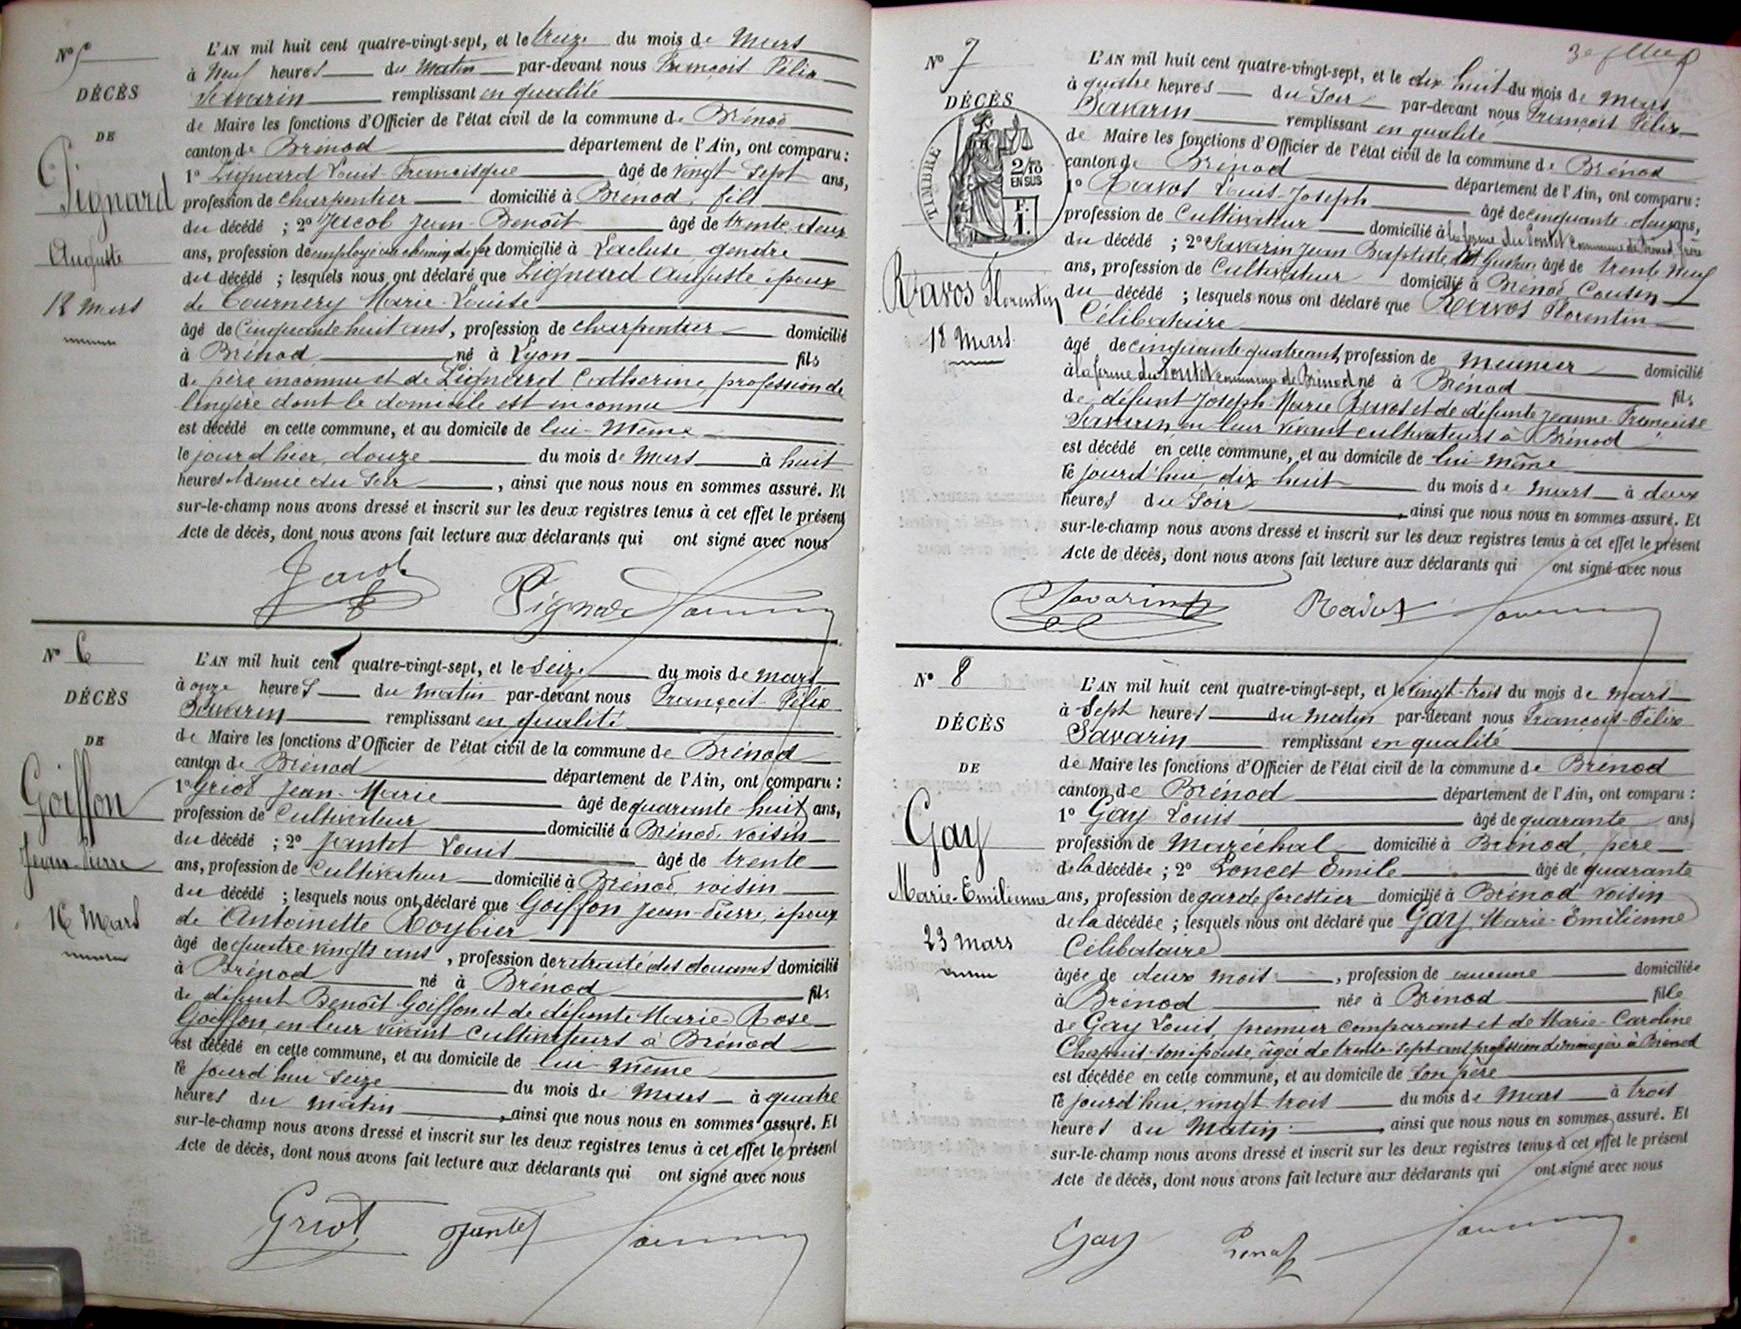 N° 5
DÉCÈS
DE
Pignard
Auguste
12 Mars
L'AN mil huit cent quatre-vingt-sept, et le treize du mois de Mars
à Neuf heures du Matin par-devant nous François Félix
Savarin remplissant en qualité
de Maire les fonctions d'Officier de l'état civil de la commune de Brénod
canton de Brénod département de l'Ain, ont comparu :
1° Pignard Louis Francisque âgé de vingt sept ans,
profession de charpentier domicilié à Brénod, fils
du décédé ; 2° Jacob Jean-Benoît âgé de trente deux
ans, profession de employé au chemin de fer domicilié à Lacluse, gendre
du décédé ; lesquels nous ont déclaré que Pignard Auguste époux
de Tournery Marie-Louise
âgé de Cinquante huit ans, profession de charpentier domicilié
à Brénod né à Lyon fils
de père inconnu et de Pignard Catherine, profession de
lingère dont le domicile est inconnu
est décédé en cette commune, et au domicile de lui-même
le jourd'hier, douze du mois de Mars à huit
heures et demie du Soir, ainsi que nous nous en sommes assuré. Et
sur-le-champ nous avons dressé et inscrit sur les deux registres tenus à cet effet le présent
Acte de décès, dont nous avons fait lecture aux déclarants qui ont signé avec nous
Jacob Pignard Savarin
N° 6
DÉCÈS
DE
Goiffon
Jean-Pierre
16 Mars
L'AN mil huit cent quatre-vingt-sept, et le Seize du mois de Mars
à onze heures du Matin par-devant nous François-Félix
Savarin remplissant en qualité
de Maire les fonctions d'Officier de l'état civil de la commune de Brénod
canton de Brénod département de l'Ain, ont comparu :
1° Griot Jean-Marie âgé de quarante huit ans,
profession de Cultivateur domicilié à Brénod, voisin
du décédé ; 2° Jantet Louis âgé de trente
ans, profession de Cultivateur domicilié à Brénod, voisin
du décédé ; lesquels nous ont déclaré que Goiffon Jean-Pierre, époux
de Antoinette Roybier
âgé de quatre vingts ans, profession de retraité des douanes domicilié
à Brénod né à Brénod fils
de défunt Benoît Goiffon et de défunte Marie-Rose
Goiffon en leur vivant Cultivateurs à Brénod
est décédé en cette commune, et au domicile de lui-même
le jourd'hui Seize du mois de Mars à quatre
heures du matin, ainsi que nous nous en sommes assuré. Et
sur-le-champ nous avons dressé et inscrit sur les deux registres tenus à cet effet le présent
Acte de décès, dont nous avons fait lecture aux déclarants qui ont signé avec nous
Griot Jantet Savarin
3e
N° 7
DÉCÈS
TIMBRE
2/10
EN SUS
F.
1.
Ravos Florentin
18 Mars
L'AN mil huit cent quatre-vingt-sept, et le dix huit du mois de Mars
à quatre heures du Soir par-devant nous François Félix
Savarin remplissant en qualité
de Maire les fonctions d'Officier de l'état civil de la commune de Brénod
canton de Brénod département de l'Ain, ont comparu :
1° Ravos Louis-Joseph âgé de cinquante-deux ans,
profession de Cultivateur domicilié à la ferme du Pontet commune de Brénod, frère
du décédé ; 2° Savarin Jean Baptiste dit Gustave âgé de trente neuf
ans, profession de Cultivateur domicilié à Brénod Cousin
du décédé ; lesquels nous ont déclaré que Ravos Florentin
Célibataire
âgé de cinquante quatre ans, profession de meunier domicilié
à la ferme du Pontet commune de Brénod né à Brénod fils
de défunt Joseph-Marie Ravos et de défunte Jeanne Françoise
Savarin en leur vivant cultivateurs à Brénod
est décédé en cette commune, et au domicile de lui-même
le jourd'hui, dix huit du mois de Mars à deux
heures du Soir, ainsi que nous nous en sommes assuré. Et
sur-le-champ nous avons dressé et inscrit sur les deux registres tenus à cet effet le présent
Acte de décès, dont nous avons fait lecture aux déclarants qui ont signé avec nous
Savarin Ravos Savarin
N° 8
DÉCÈS
DE
Gay
Marie-Emilienne
23 mars
L'AN mil huit cent quatre-vingt-sept, et le vingt-trois du mois de Mars
à Sept heures du matin par-devant nous François-Félix
Savarin remplissant en qualité
de Maire les fonctions d'Officier de l'état civil de la commune de Brénod
canton de Brénod département de l'Ain, ont comparu :
1° Gay Louis âgé de quarante ans,
profession de Maréchal domicilié à Brénod, père
de la décédée ; 2° Poncet Emile âgé de quarante
ans, profession de garde forestier domicilié à Brénod voisin
de la décédée ; lesquels nous ont déclaré que Gay, Marie-Emilienne
Célibataire
âgée de deux mois, profession de aucune domiciliée
à Brénod née à Brénod fille
de Gay Louis, premier comparant et de Marie-Caroline
Chapuis son épouse âgée de trente-sept ans profession de ménagère à Brénod
est décédée en cette commune, et au domicile de Son père
le jourd'hui, vingt trois du mois de Mars à trois
heures du Matin, ainsi que nous nous en sommes assuré. Et
sur-le-champ nous avons dressé et inscrit sur les deux registres tenus à cet effet le présent
Acte de décès, dont nous avons fait lecture aux déclarants qui ont signé avec nous
Gay Savarin